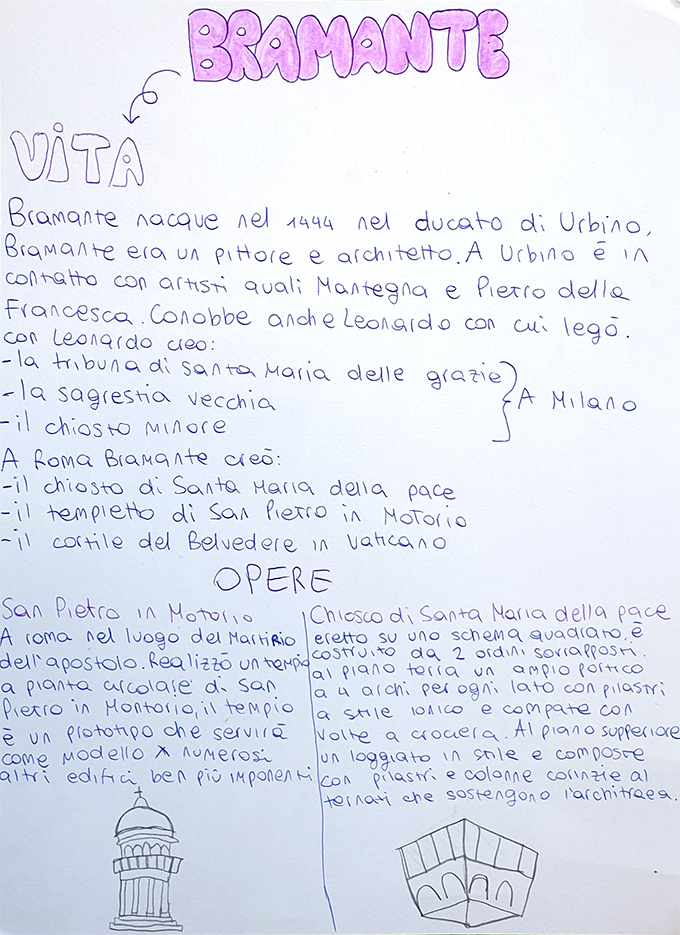 BRAMANTE
ViTA
Bramante nacque nel 1444 nel ducato di Urbino,
Bramante era un pittore e architetto. A Urbino é in
contatto con artisti quali Mantegna e Pietro della
Francesca. Conobbe anche Leonardo con cui legó.
con Leonardo creo:
-la tribuna di santa Maria delle grazie
-la sagrestia vecchia
-il chiosto minore
A Milano
A Roma Bramante creó:
-il chiosto di Santa Maria della pace
-il tempietto di San Pietro in Motorio
-il cortile del Belvedere in Vaticano
OPERE
San Pietro in Motorio
A roma nel luogo del Martirio
dell'apostolo. Realizzó un tempio
a pianta circolare di San
Pietro in Montorio, il tempio
é un prototipo che servirá
come modello x numerosi
altri edifici ben piú imponenti
Chiosco di Santa Maria della pace
eretto su uno schema quadrato, é
costruito da 2 ordini sorrapposti.
al piano terra un ampio portico
a 4 archi per ogni lato con pilastri
a stile ionico e compate con
volte a crociera. Al piano supperiore
un loggiato in stile e composte
con pilastri e colonne corinzie al
ternati che sostengono l'architraea.